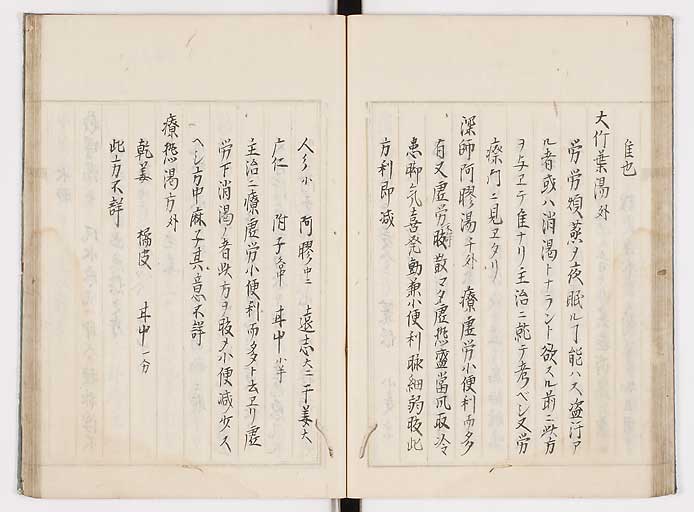 隹也
大竹葉湯 外
労労煩燕ヲ夜眠ルヿ能ハス盗汗ア
ル者或ハ消渇トナラント欲スル前ニ此方
ヲ与ヱテ隹ナリ主治ニ就テ考ベシ又労
療門ニ見ヱタリ
深師阿膠湯 千外 療虚労小便利而多
有又虚労服散マタ虚热盛當風取冷
患脚気喜発動兼小便利脉細弱服此
方利即减
人参小 阿膠中二 遠志大二 干姜大
广仁 附子 甘中
主治ニ療虚労小便利而多ト去ヱリ虚
労下消渇ノ者此方ヲ服メ小便减少ス
ヘシ方中麻子其意不詳
療热渇方 外
乾姜 橘皮 甘中一分
此方不詳